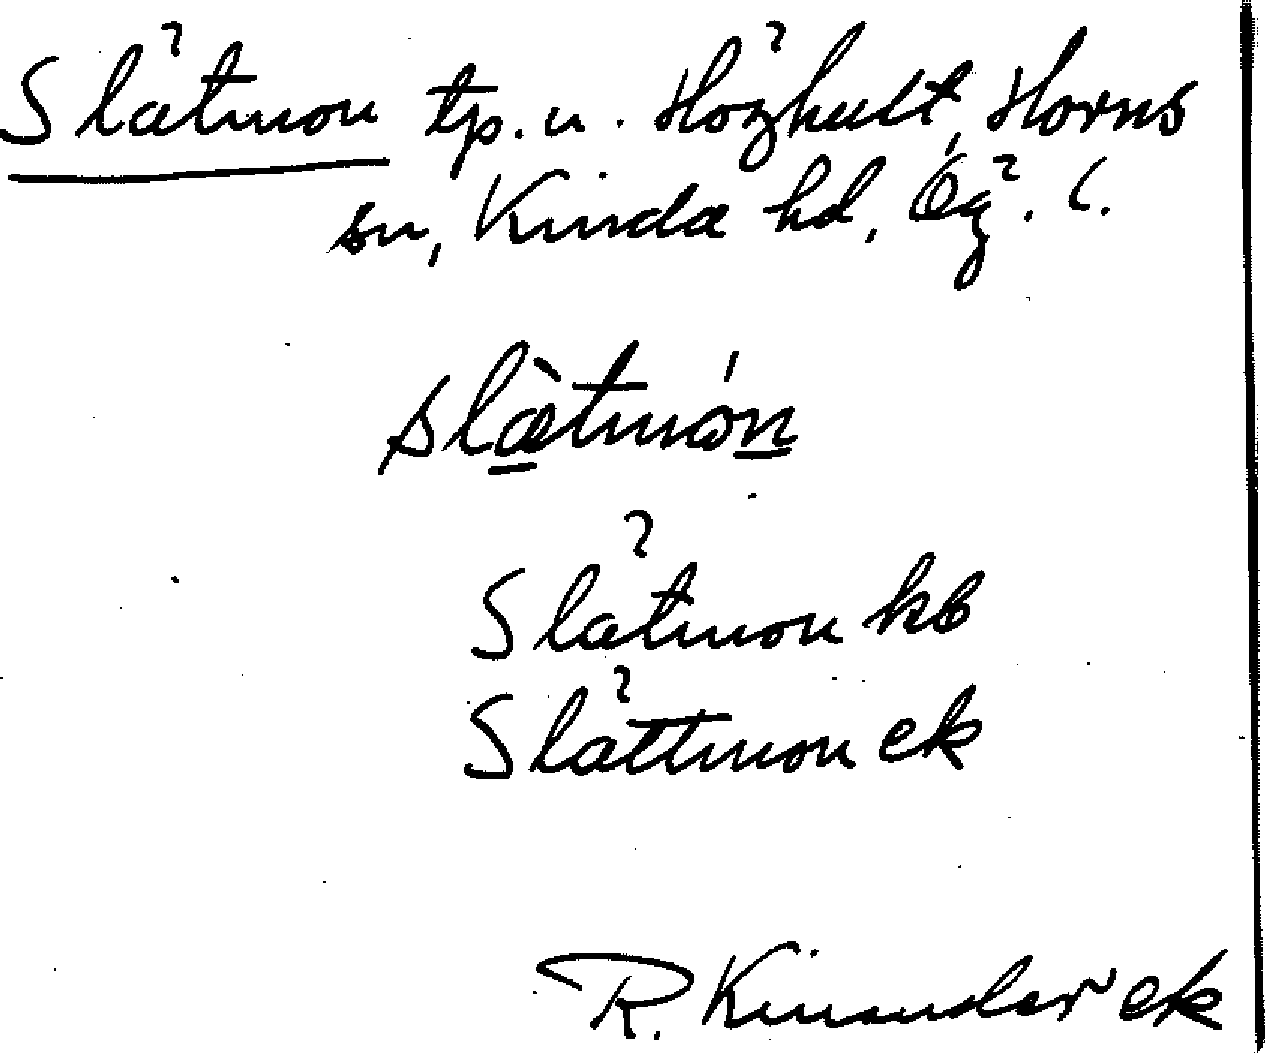 Slätmon tp. u. Höghult, Horns
sn, Kinda hd, Ög. l.
slæ̀tmón
Slätmon kb
Slättmon ek
R. Kinander ek